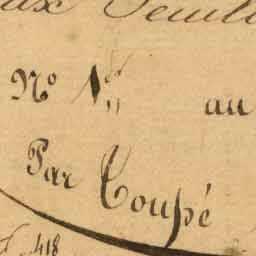 aux Feuill
N° 1er au
Par Coupé
F. 418